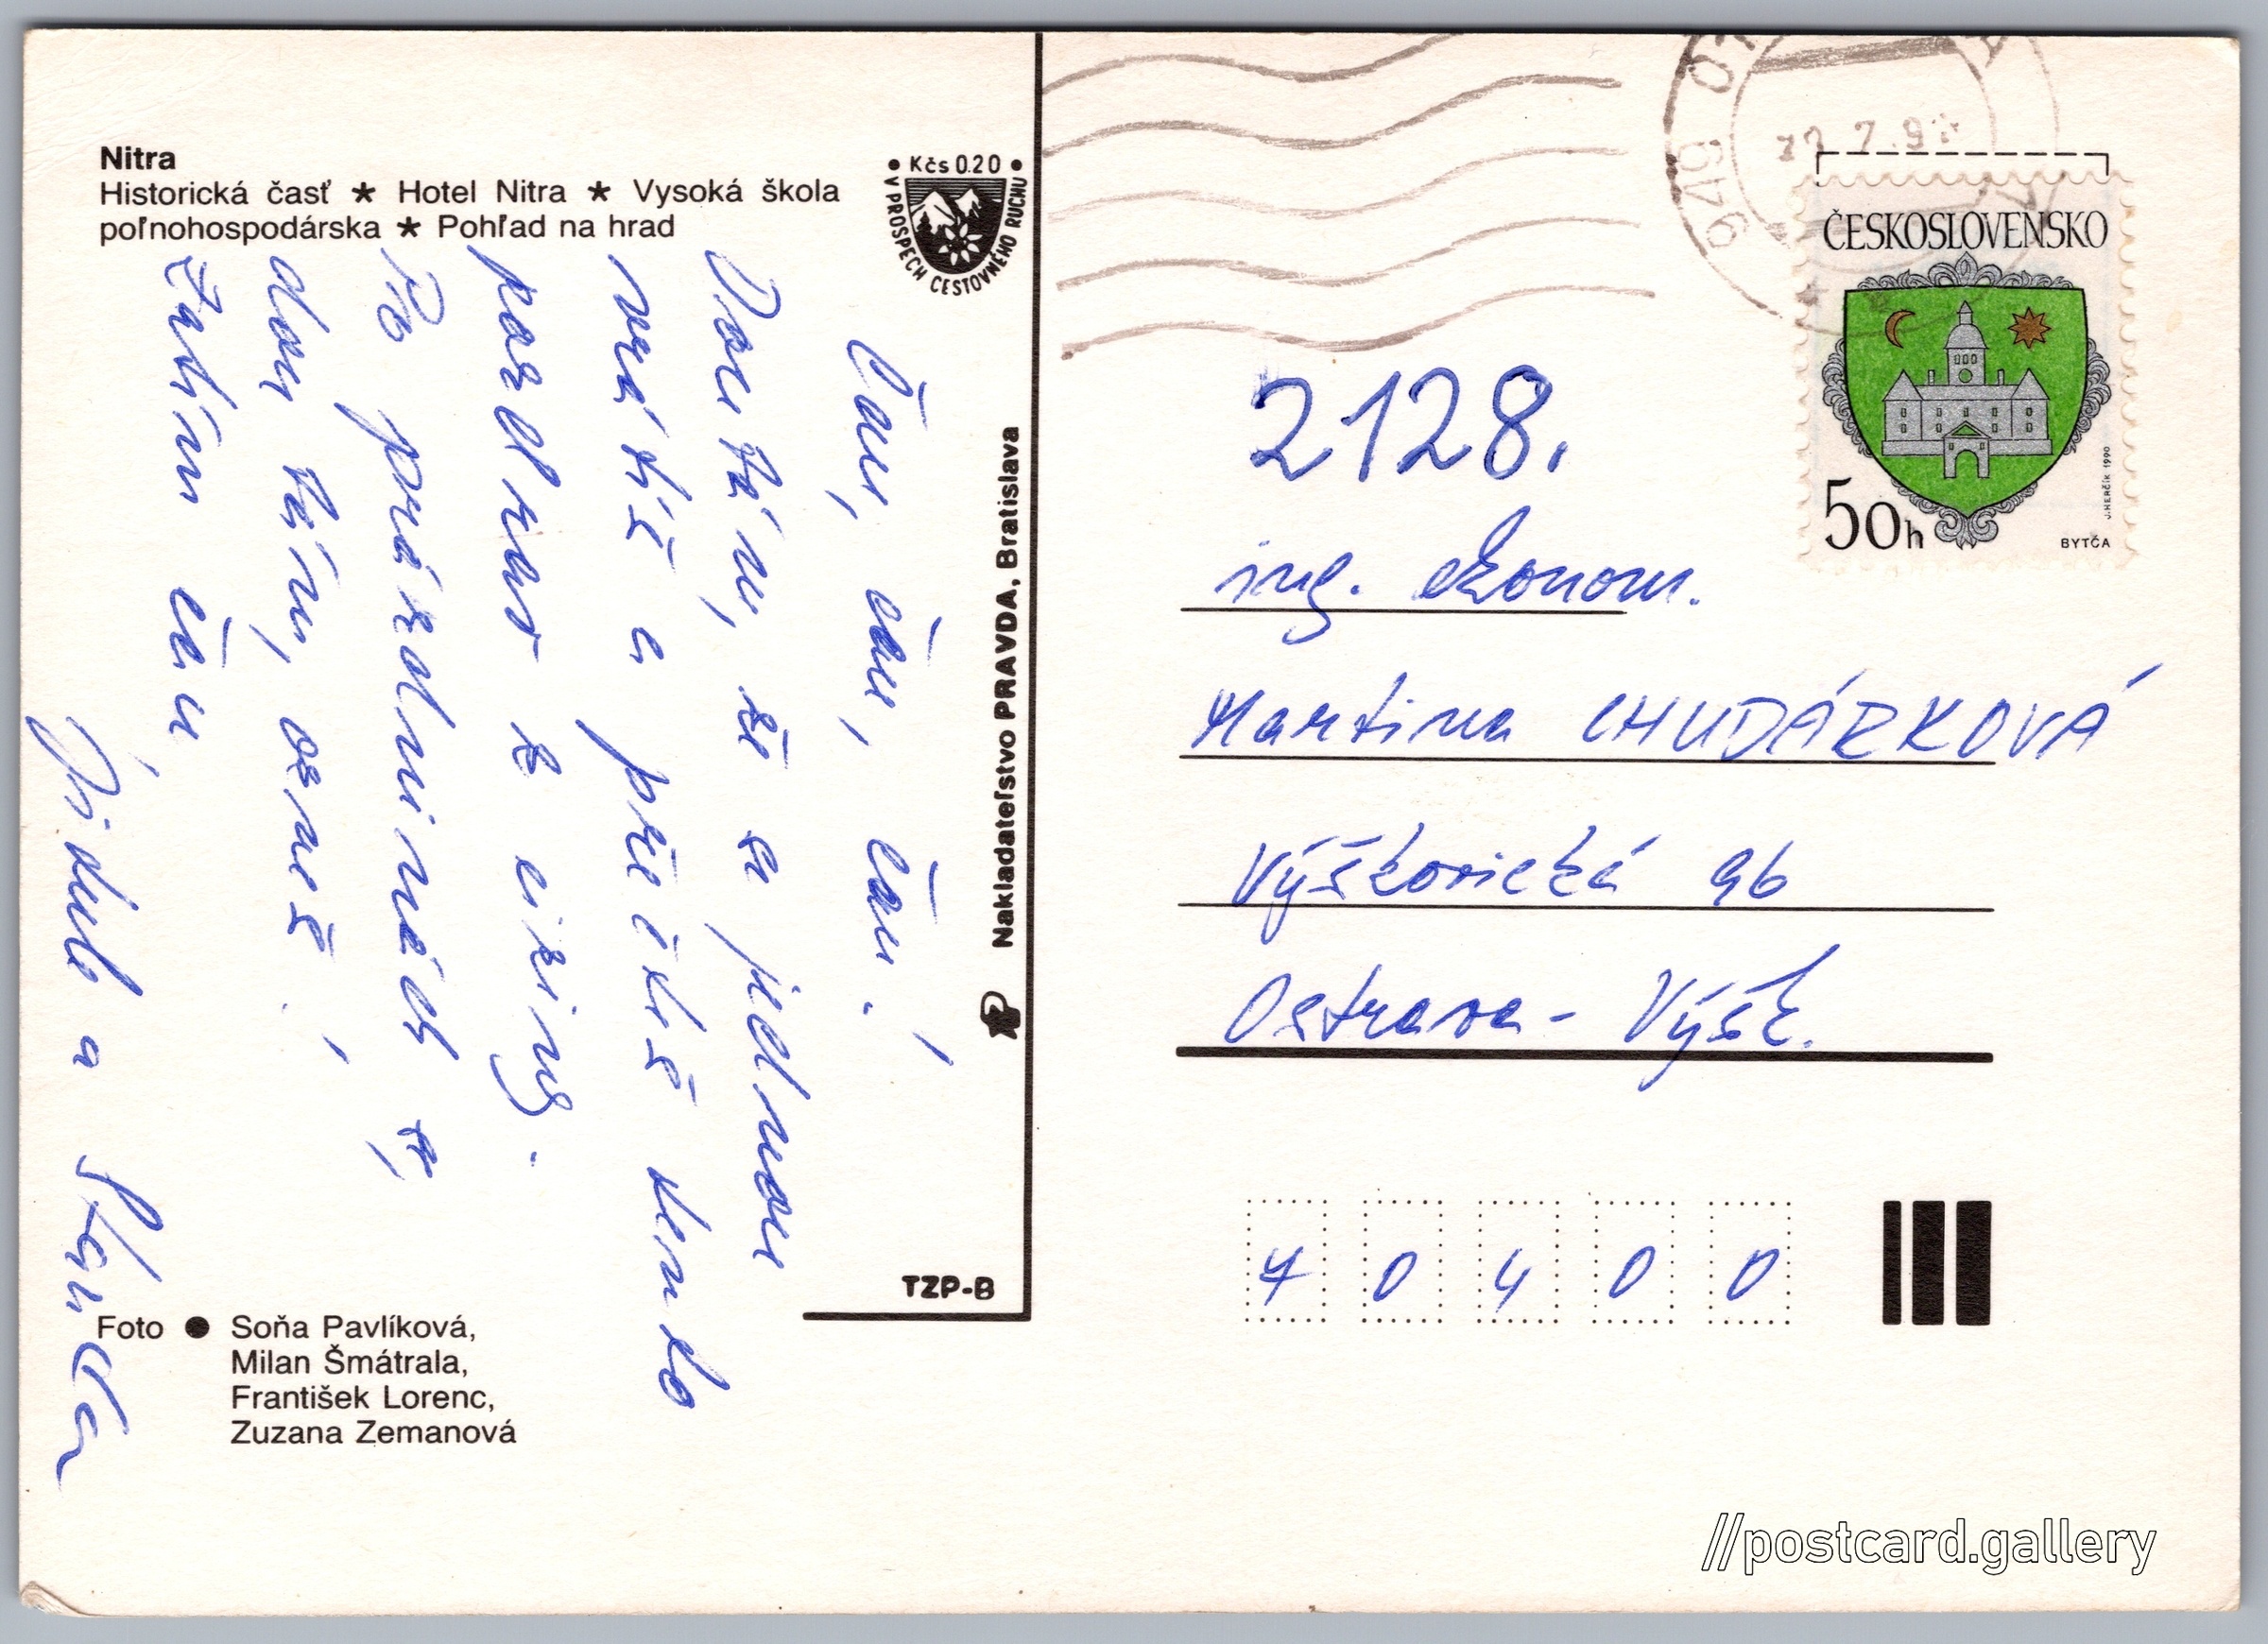 Nitra
Historická časť ★ Hotel Nitra ★ Vysoká škola
poľnohospodárska ★ Pohľad na hrad
• Kčs 0.20 •
V PROSPECH CESTOVNÉHO RUCHU
Čau, čau, čau!
Doufám, že se jednou
vrátíš a přečteš tento
pozdrav z ciziny.
Po prázdninách tě,
doufám, uzneš!
Zatím čau
a
Nakladateľstvo PRAVDA, Bratislava
TZP-B
Foto ● Soňa Pavlíková,
Milan Šmátrala,
František Lorenc,
Zuzana Zemanová
949 01
ČESKOSLOVENSKO
50h
J. HERČÍK 1990
BYTČA
2128.
ing. ekonom.
Martina CHUDÁRKOVÁ
Výškovická 96
Ostrava - Výšk.
70400
//postcard.gallery